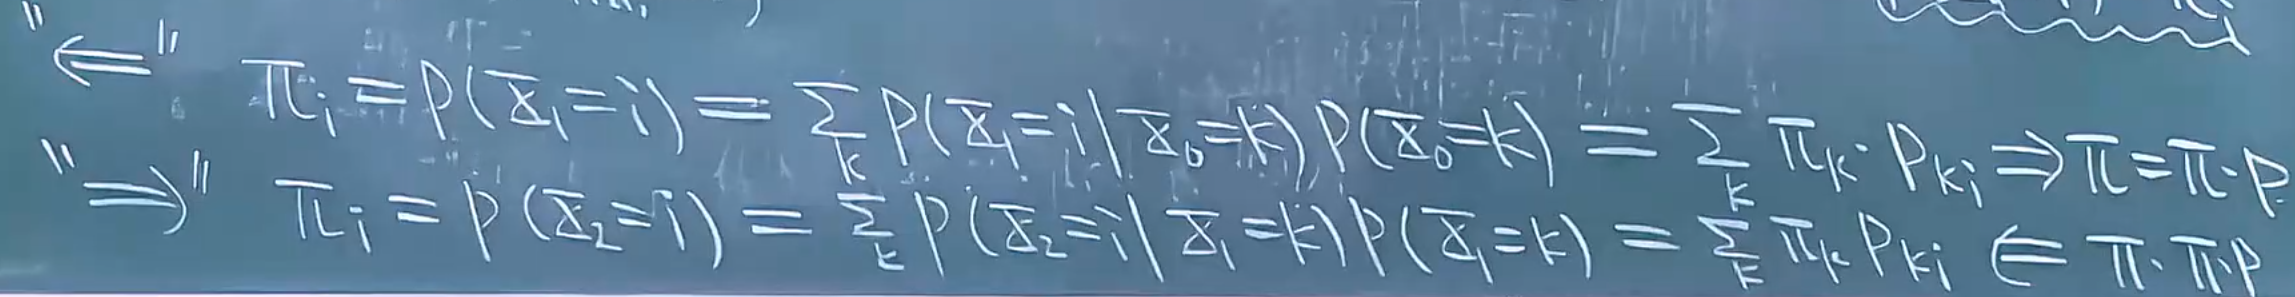 "⇐" π_i = P(X_1=i) = Σ_k P(X_1=i | X_0=k) P(X_0=k) = Σ_k π_k · P_{ki} ⇒ π = π·P
"⇒" π_i = P(X_2=i) = Σ_k P(X_2=i | X_1=k) P(X_1=k) = Σ_k π_k · P_{ki} ⇐ π · π·P